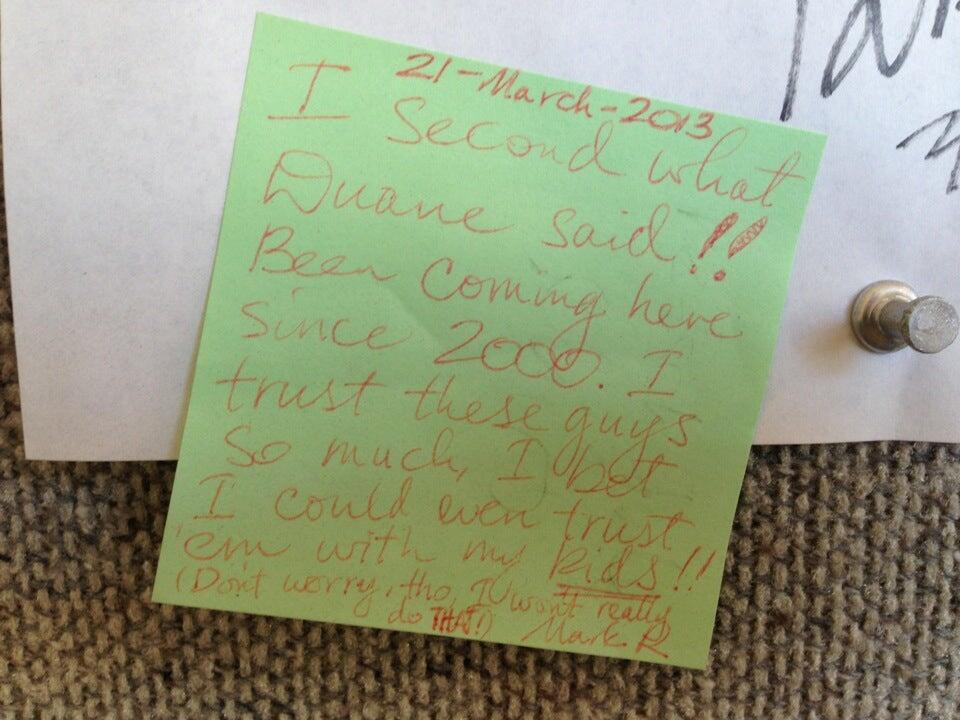 21-March-2013
I Second what
Duane said!!
Been coming here
since 2000. I
trust these guys
So much, I bet
I could even trust
'em with my kids!!
(Don't worry, tho, I won't really
do THAT!) Mark R